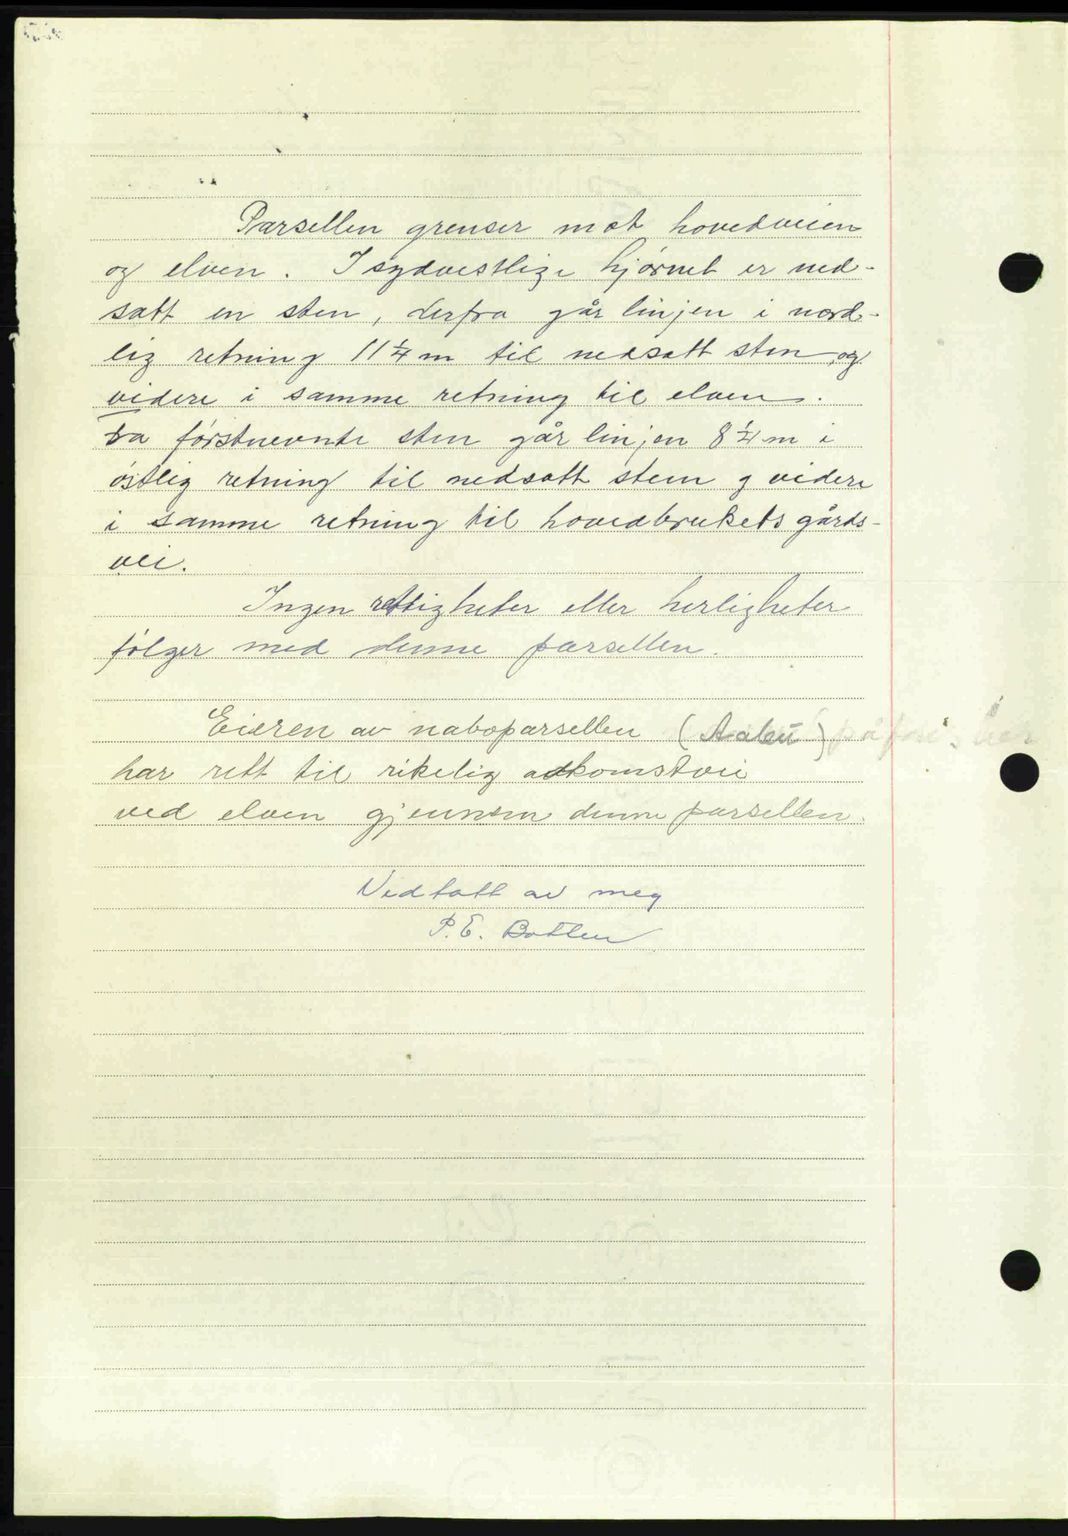 Parsellen grenser mot hovedveien
og elven. I sydvestlige hjørnet er ned-
satt en sten, derfra går linjen i nord-
lig retning 11 1/4 m til nedsatt sten og
videre i samme retning til elven.
Fra førstnevnte sten går linjen 8 1/4 m i
østlig retning til nedsatt sten og videre
i samme retning til hovedbrukets gårds-
vei.
Ingen rettigheter eller herligheter
følger med denne parsellen.
Eieren av naboparsellen
har rett til rikelig adkomstvei
ved elven gjennem denne parsellen.
Vedtatt av meg
P. E. Botten